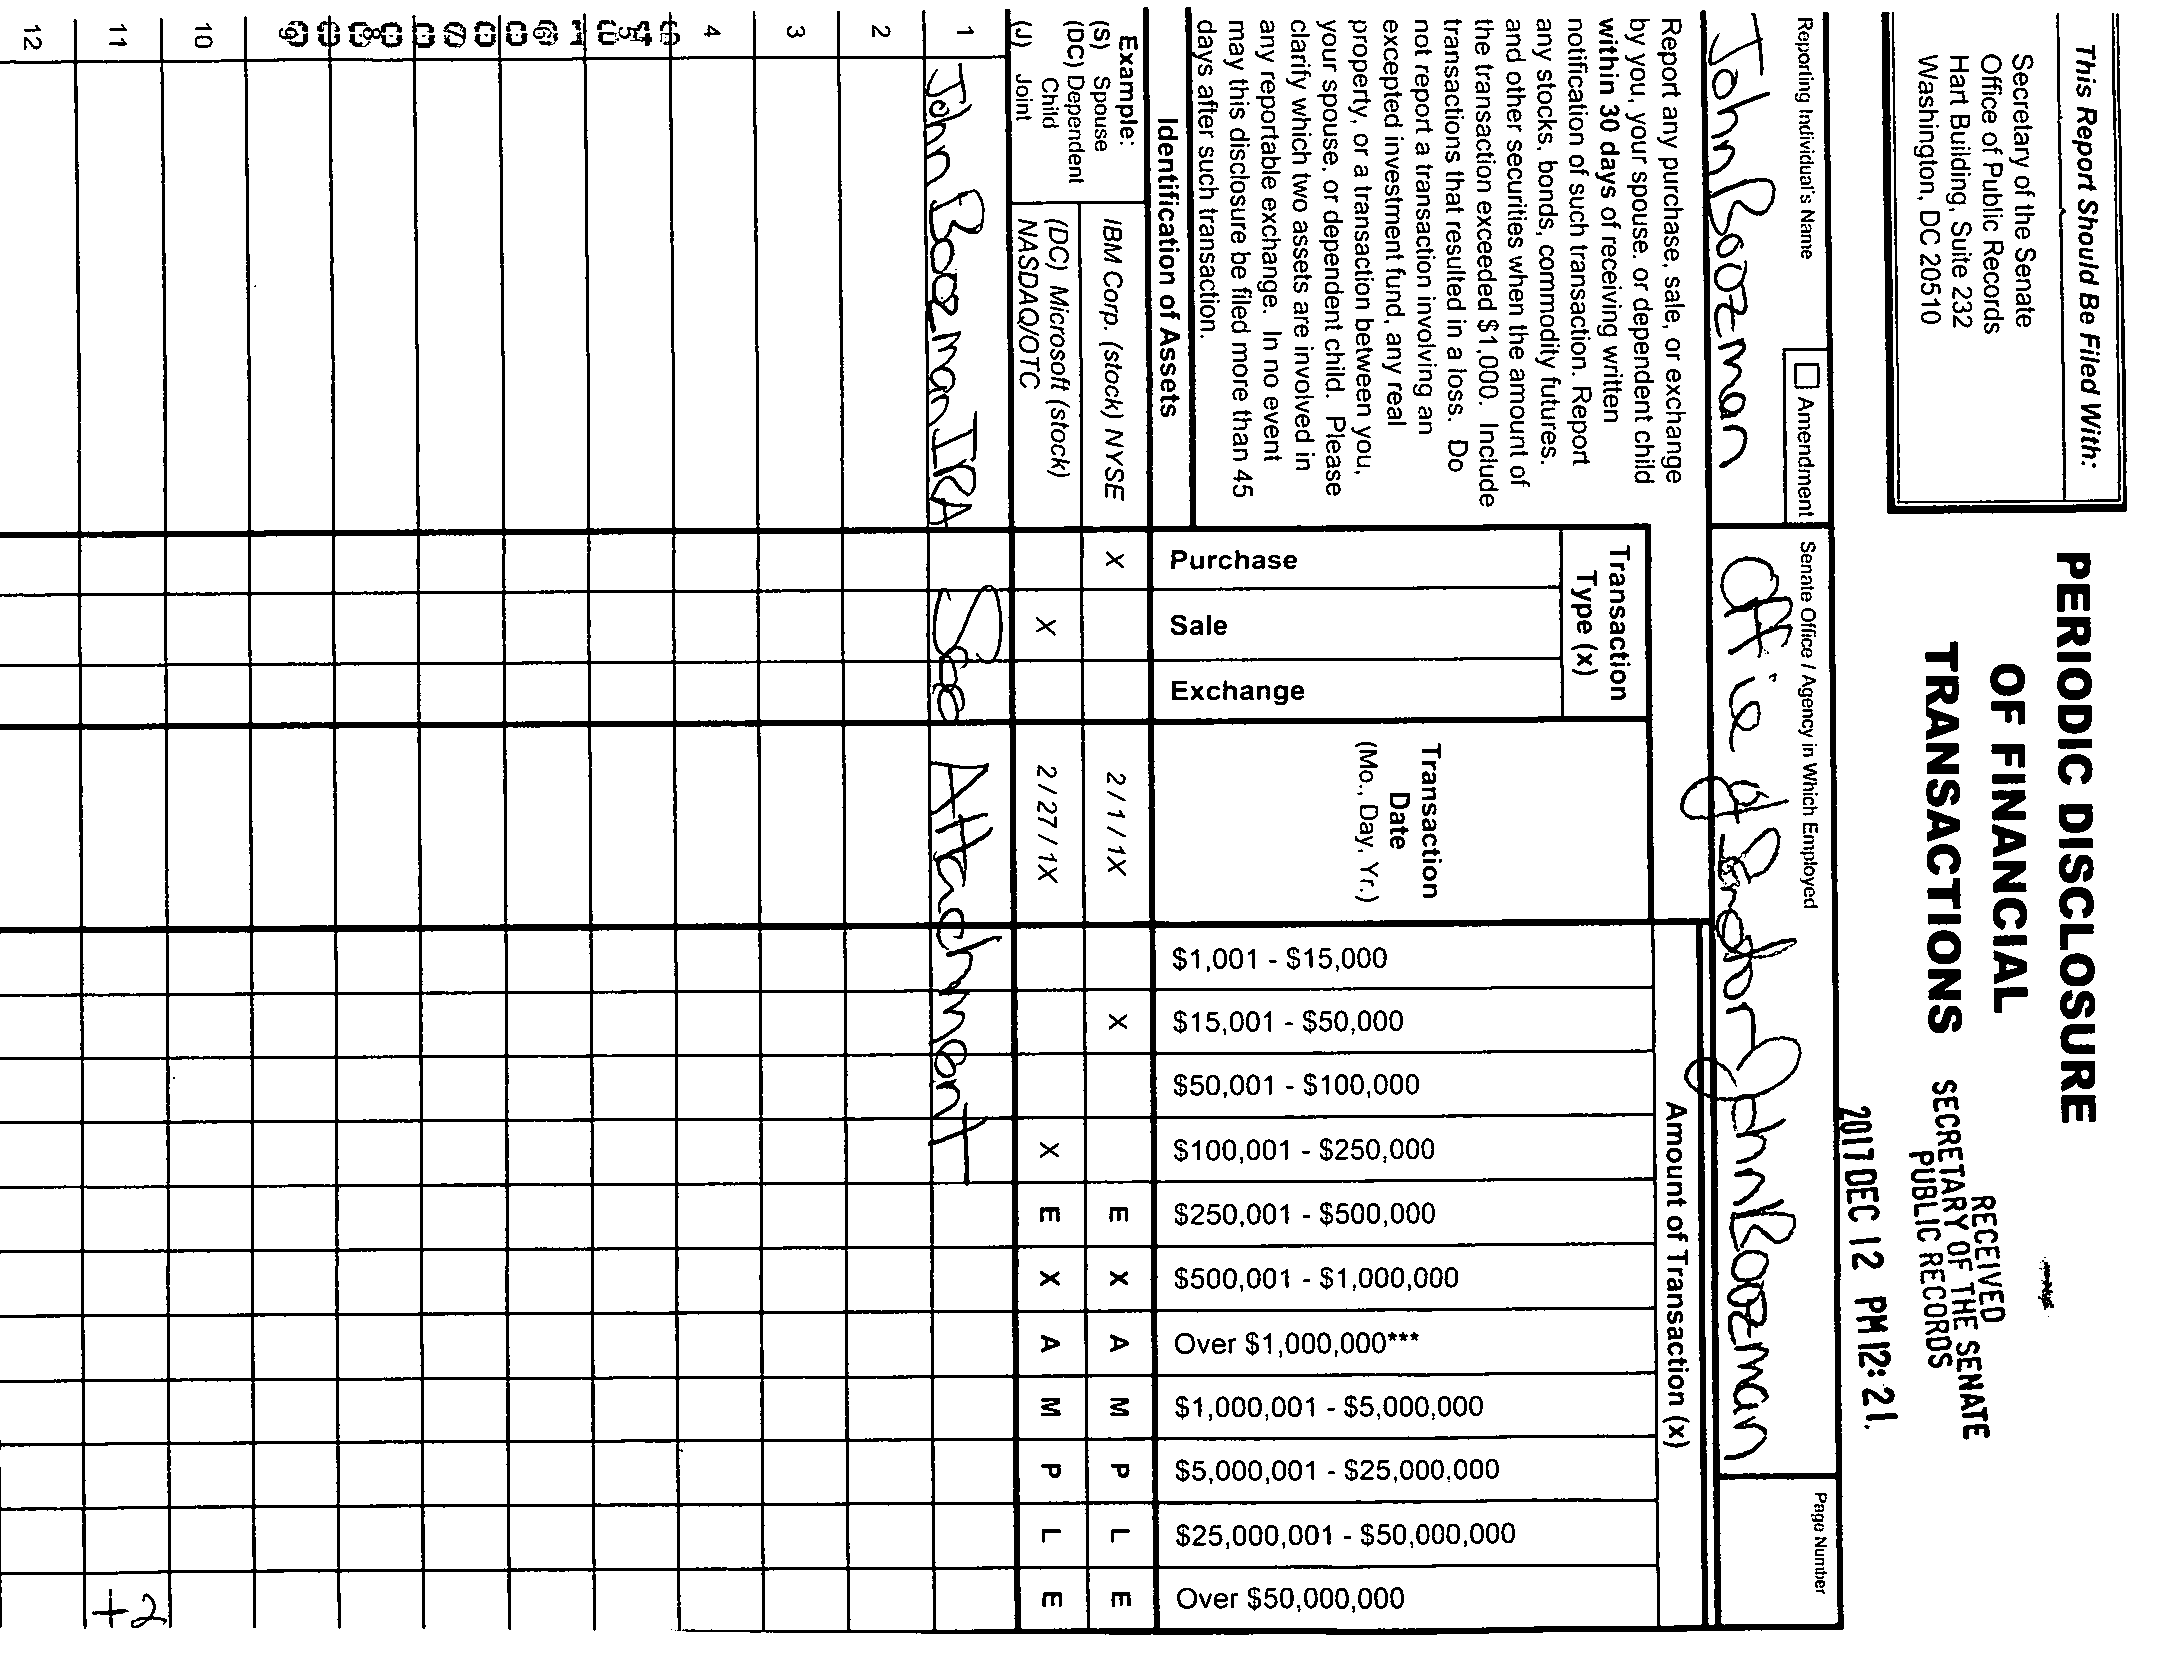 This Report Should Be Filed With:
Secretary of the Senate
Office of Public Records
Hart Building, Suite 232
Washington, DC 20510
PERIODIC DISCLOSURE
OF FINANCIAL
TRANSACTIONS
RECEIVED
SECRETARY OF THE SENATE
PUBLIC RECORDS
2017 DEC 12 PM 12:21
Reporting Individual's Name
Amendment
John Boozman
Senate Office / Agency in Which Employed
Offie of Senator John Boozman
Page Number
Report any purchase, sale, or exchange
by you, your spouse, or dependent child
within 30 days of receiving written
notification of such transaction. Report
any stocks, bonds, commodity futures,
and other securities when the amount of
the transaction exceeded $1,000. Include
transactions that resulted in a loss. Do
not report a transaction involving an
excepted investment fund, any real
property, or a transaction between you,
your spouse, or dependent child. Please
clarify which two assets are involved in
any reportable exchange. In no event
may this disclosure be filed more than 45
days after such transaction.
Identification of Assets
Transaction
Type (x)
Purchase
Sale
Exchange
Transaction
Date
(Mo., Day, Yr.)
Amount of Transaction (x)
$1,001 - $15,000
$15,001 - $50,000
$50,001 - $100,000
$100,001 - $250,000
$250,001 - $500,000
$500,001 - $1,000,000
Over $1,000,000***
$1,000,001 - $5,000,000
$5,000,001 - $25,000,000
$25,000,001 - $50,000,000
Over $50,000,000
Example:
(S) Spouse
(DC) Dependent
Child
(J) Joint
IBM Corp. (stock) NYSE X 2/1/1X X E X A M P L E
(DC) Microsoft (stock)
NASDAQ/OTC X 2/27/1X X E X A M P L E
1 John Boozman IRA See Attachment
2
3
4
10
11 +2
12